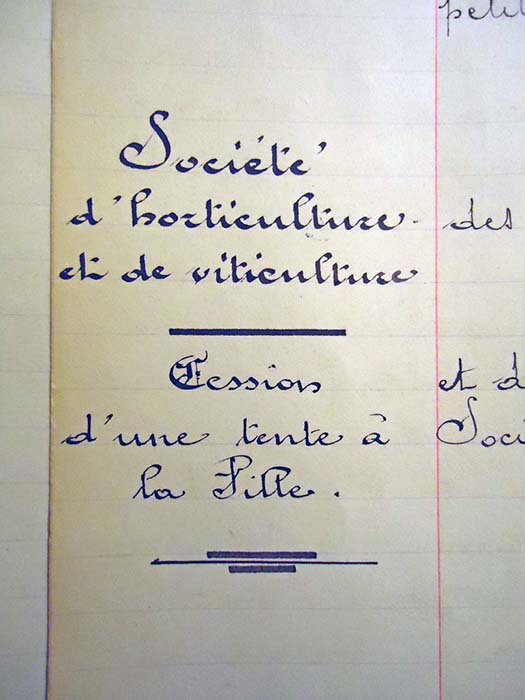 petit
Société
d'horticulture - des
et de viticulture
Cession et d
d'une tente à Soci
la Ville.